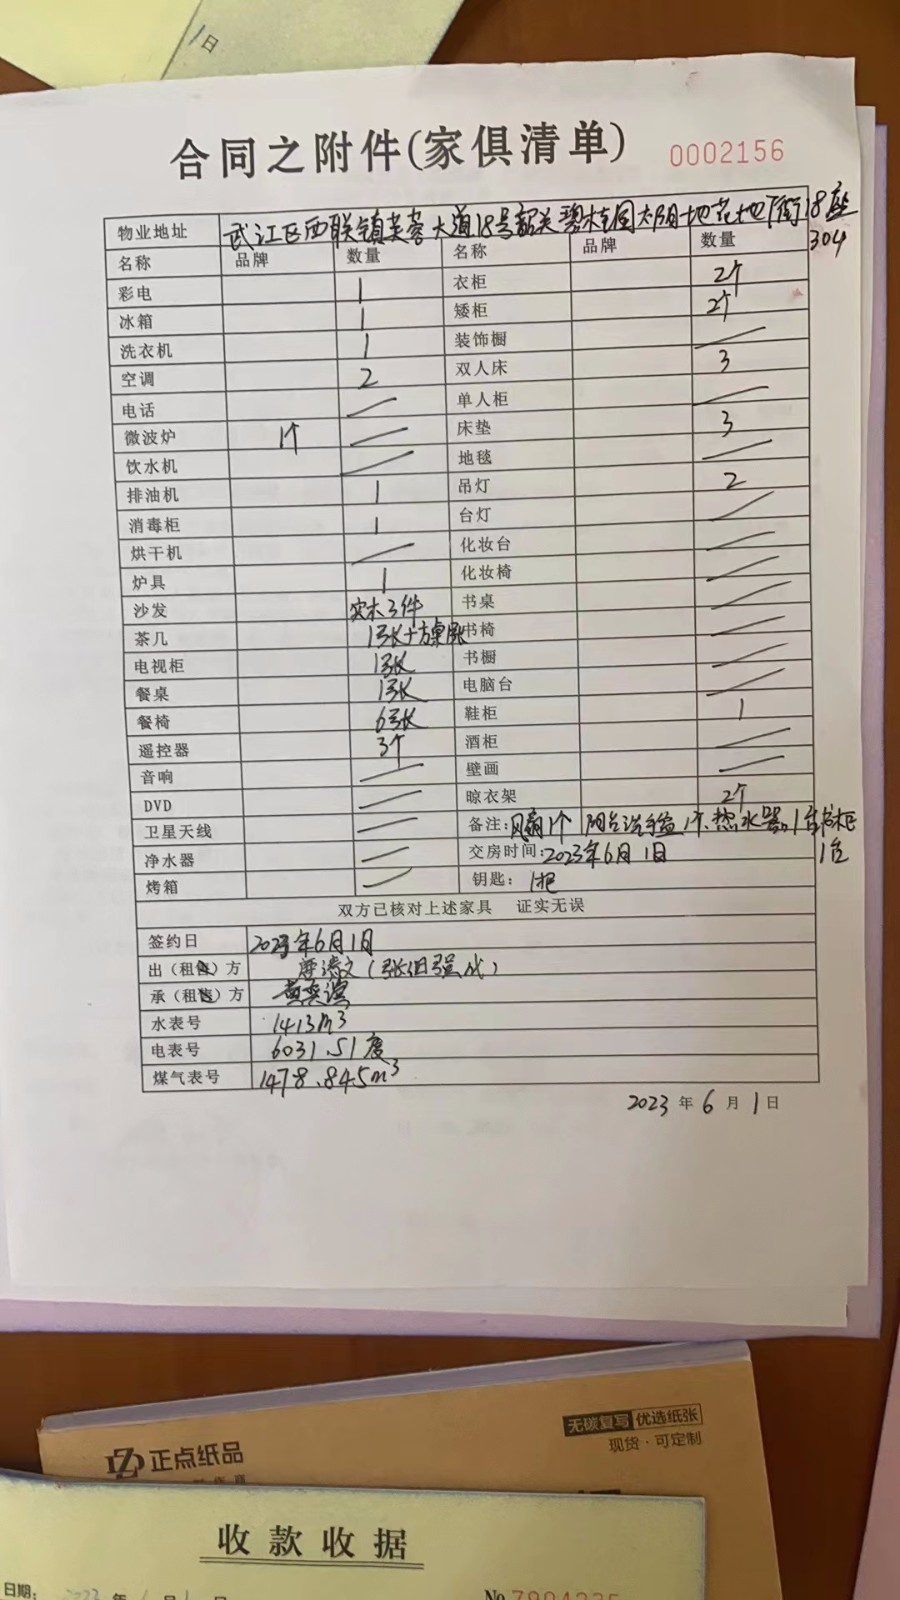 1日
合同之附件(家俱清单) 0002156
物业地址 武江区西联镇芙蓉大道18号韶关碧桂园太阳城花地下街18座
304
名称 品牌 数量 名称 品牌 数量
彩电 1 衣柜 2个
冰箱 1 矮柜 2个
洗衣机 1 装饰橱 /
空调 2 双人床 3
电话 / 单人柜 /
微波炉 1个 / 床垫 3
饮水机 / 地毯 /
排油机 1 吊灯 2
消毒柜 1 台灯 /
烘干机 / 化妆台 /
炉具 1 化妆椅 /
沙发 实木3件 书桌 /
茶几 1张+方桌1张 书椅 /
电视柜 1张 书橱 /
餐桌 1张 电脑台 /
餐椅 6张 鞋柜 1
遥控器 3个 酒柜 /
音响 / 壁画 /
DVD / 晾衣架 2个
卫星天线 / 备注:风扇1个 阳台洗手盆1个、热水器1台
净水器 / 交房时间:2023年6月1日 1台
烤箱 / 钥匙: 1把
双方已核对上述家具 证实无误
签约日 2023年6月1日
出(租售)方
承(租售)方
水表号 1413m³
电表号 6031.51度
煤气表号 1478.845m³
2023 年 6 月 1 日
无碳复写 优选纸张
现货·可定制
正点纸品
收款收据
日期: 2023 年 6 月 1 日 №